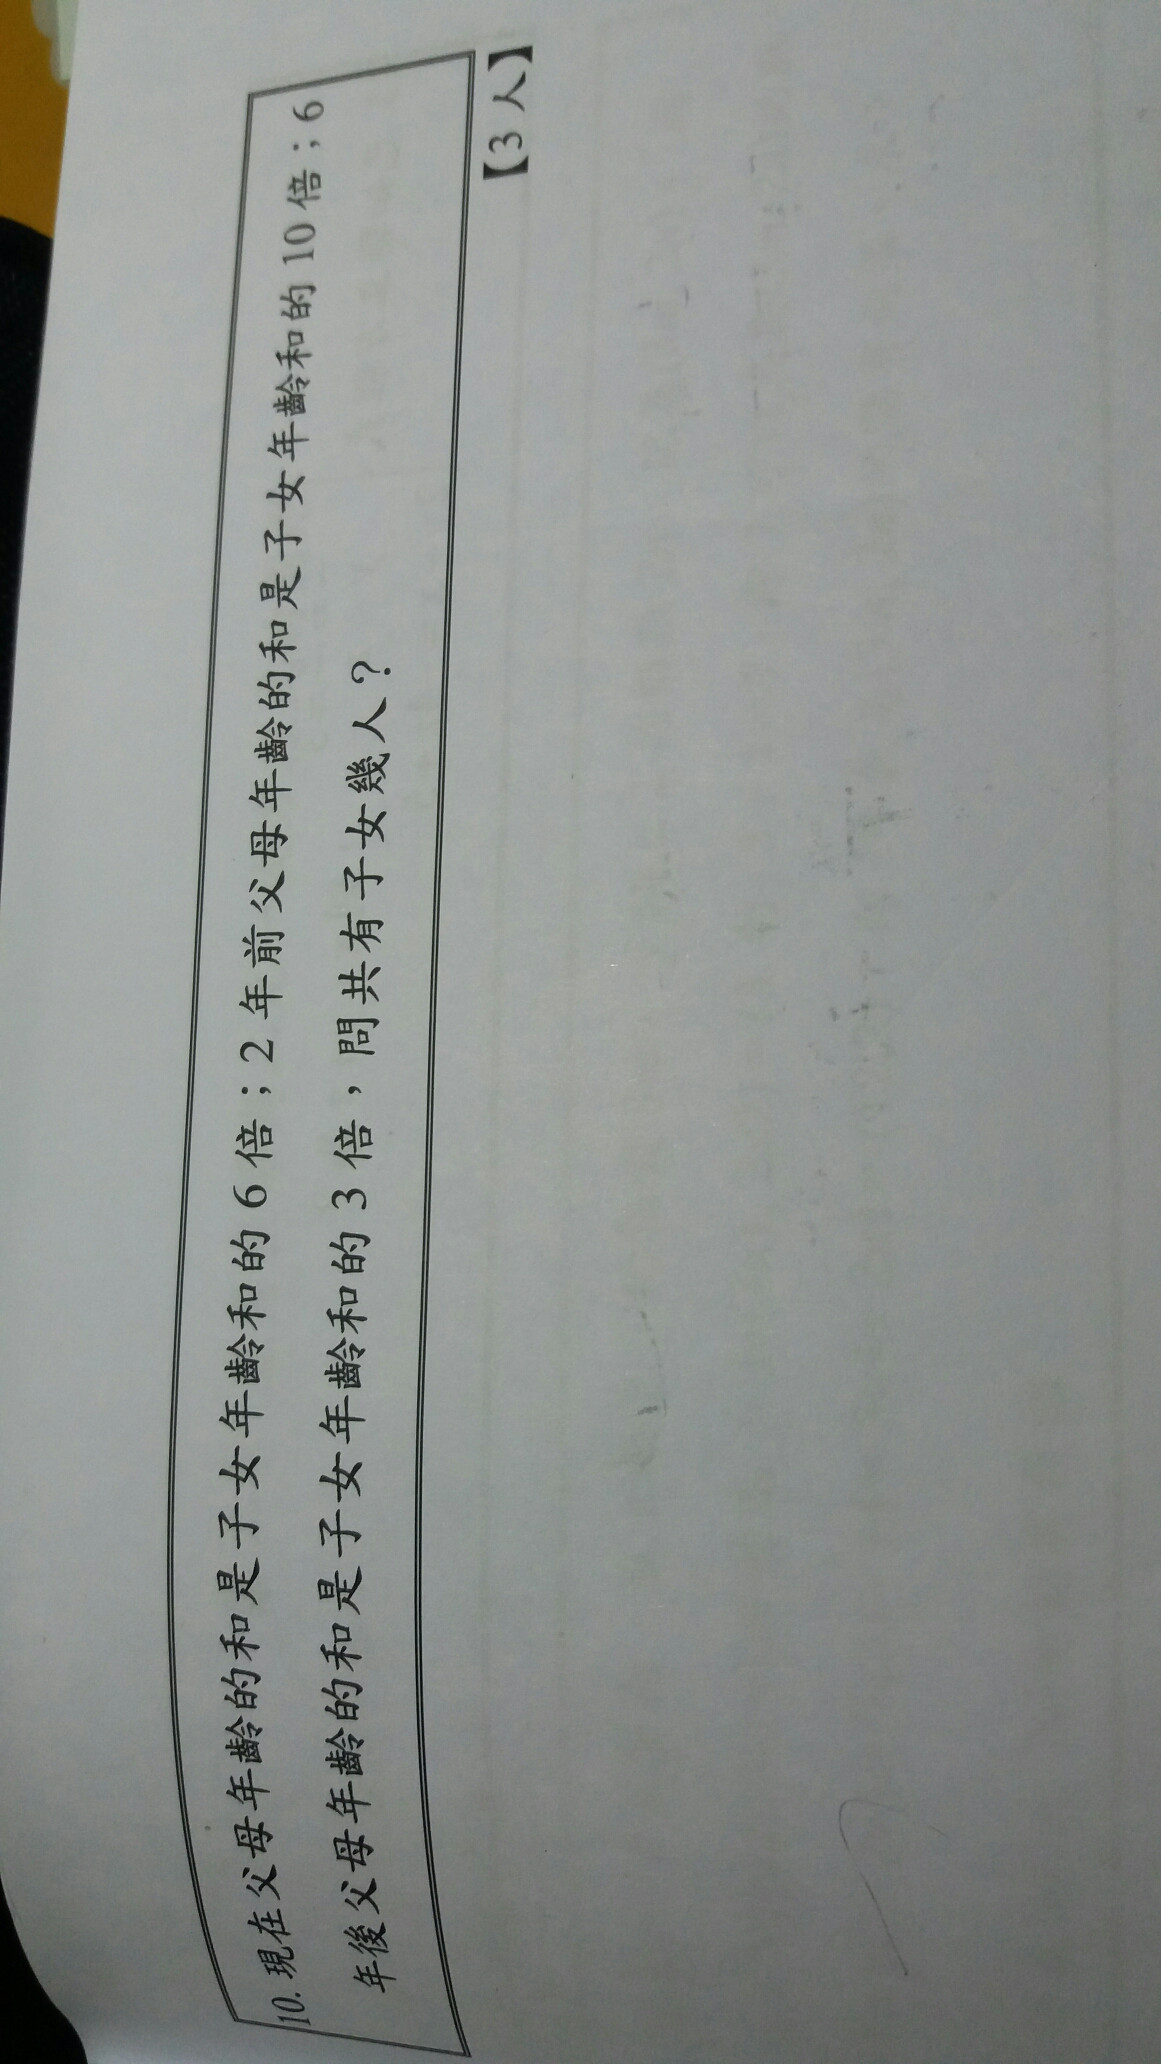 10. 現在父母年齡的和是子女年齡和的 6 倍；2 年前父母年齡的和是子女年齡和的 10 倍；6
年後父母年齡的和是子女年齡和的 3 倍，問共有子女幾人？
【3 人】